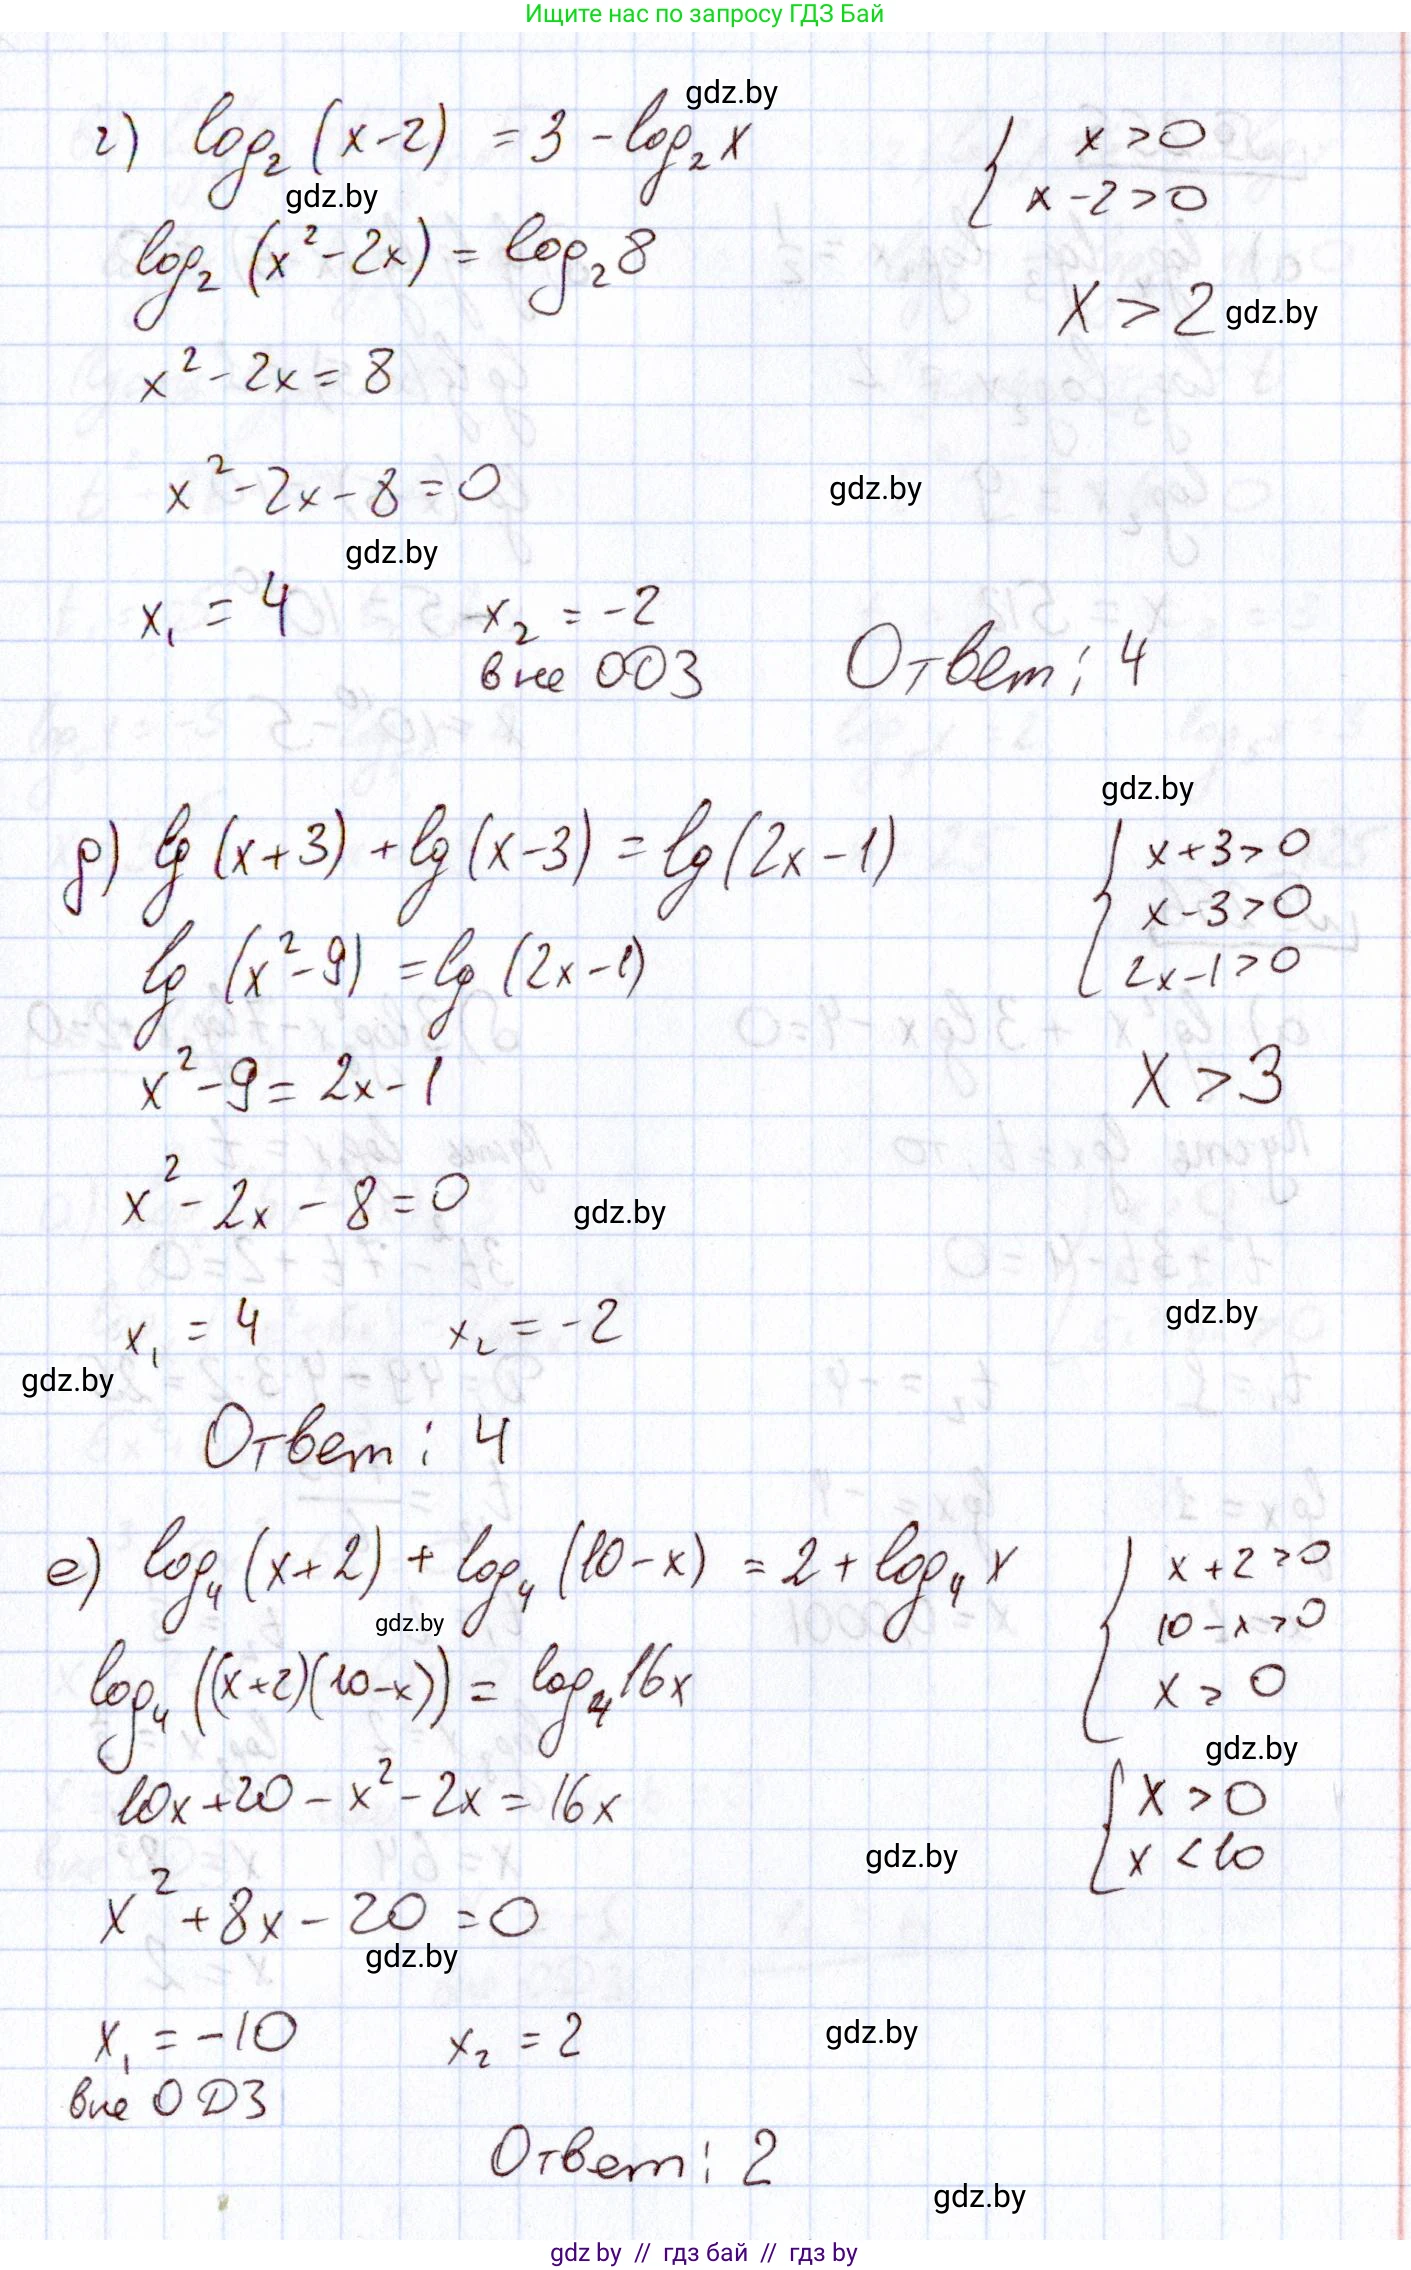 Ищите нас по запросу ГДЗ Бай
gdz.by
г) log₂(x-2) = 3 - log₂x
{ x>0
x-2>0
gdz.by
log₂(x²-2x) = log₂8
x>2 gdz.by
x²-2x=8
x²-2x-8=0
gdz.by
gdz.by
x₁ = 4 x₂ = -2
вне ОДЗ
Ответ: 4
gdz.by
д) lg(x+3)+lg(x-3)=lg(2x-1)
{ x+3>0
x-3>0
2x-1>0
lg(x²-9)=lg(2x-1)
x²-9=2x-1
x>3
x²-2x-8=0
gdz.by
gdz.by
x₁ = 4 x₂ = -2
gdz.by
Ответ: 4
е) log₄(x+2)+log₄(10-x) = 2+log₄x
{ x+2>0
10-x>0
x>0
gdz.by
log₄((x+2)(10-x)) = log₄16x
gdz.by
10x+20-x²-2x=16x
{ x>0
x<10
gdz.by
x²+8x-20=0
gdz.by
x₁ = -10 x₂ = 2
gdz.by
вне ОДЗ
Ответ: 2
gdz.by
gdz by // гдз бай // гдз by